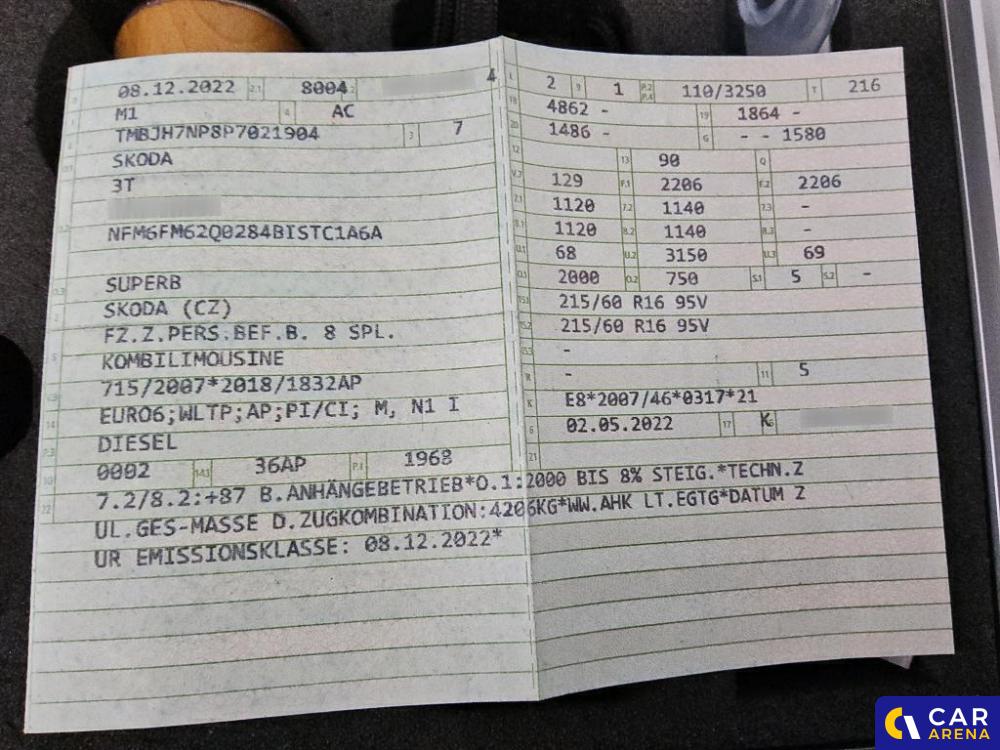 08.12.2022 2.1 8004 4
M1 4 AC
TMBJH7NP8P7021904 3 7
SKODA
3T
NFM6FM62Q0284BISTC1A6A
SUPERB
SKODA (CZ)
FZ.Z.PERS.BEF.B. 8 SPL.
KOMBILIMOUSINE
715/2007*2018/1832AP
EURO6;WLTP;AP;PI/CI; M, N1 I
DIESEL
0002 14.1 36AP P.1 1968
L 2 9 1 P.2 P.4 110/3250 T 216
18 4862 - 19 1864 -
20 1486 - G - - 1580
12 13 90 Q
V.7 129 F.1 2206 F.2 2206
7.1 1120 7.2 1140 7.3 -
8.1 1120 8.2 1140 8.3 -
U.1 68 U.2 3150 U.3 69
O.1 2000 O.2 750 S.1 5 S.2 -
15.1 215/60 R16 95V
15.2 215/60 R16 95V
15.3 -
R - 11 5
K E8*2007/46*0317*21
6 02.05.2022 17 K 16
21
22 7.2/8.2:+87 B.ANHÄNGEBETRIEB*O.1:2000 BIS 8% STEIG.*TECHN.Z
UL.GES-MASSE D.ZUGKOMBINATION:4206KG*WW.AHK LT.EGTG*DATUM Z
UR EMISSIONSKLASSE: 08.12.2022*
CAR
ARENA